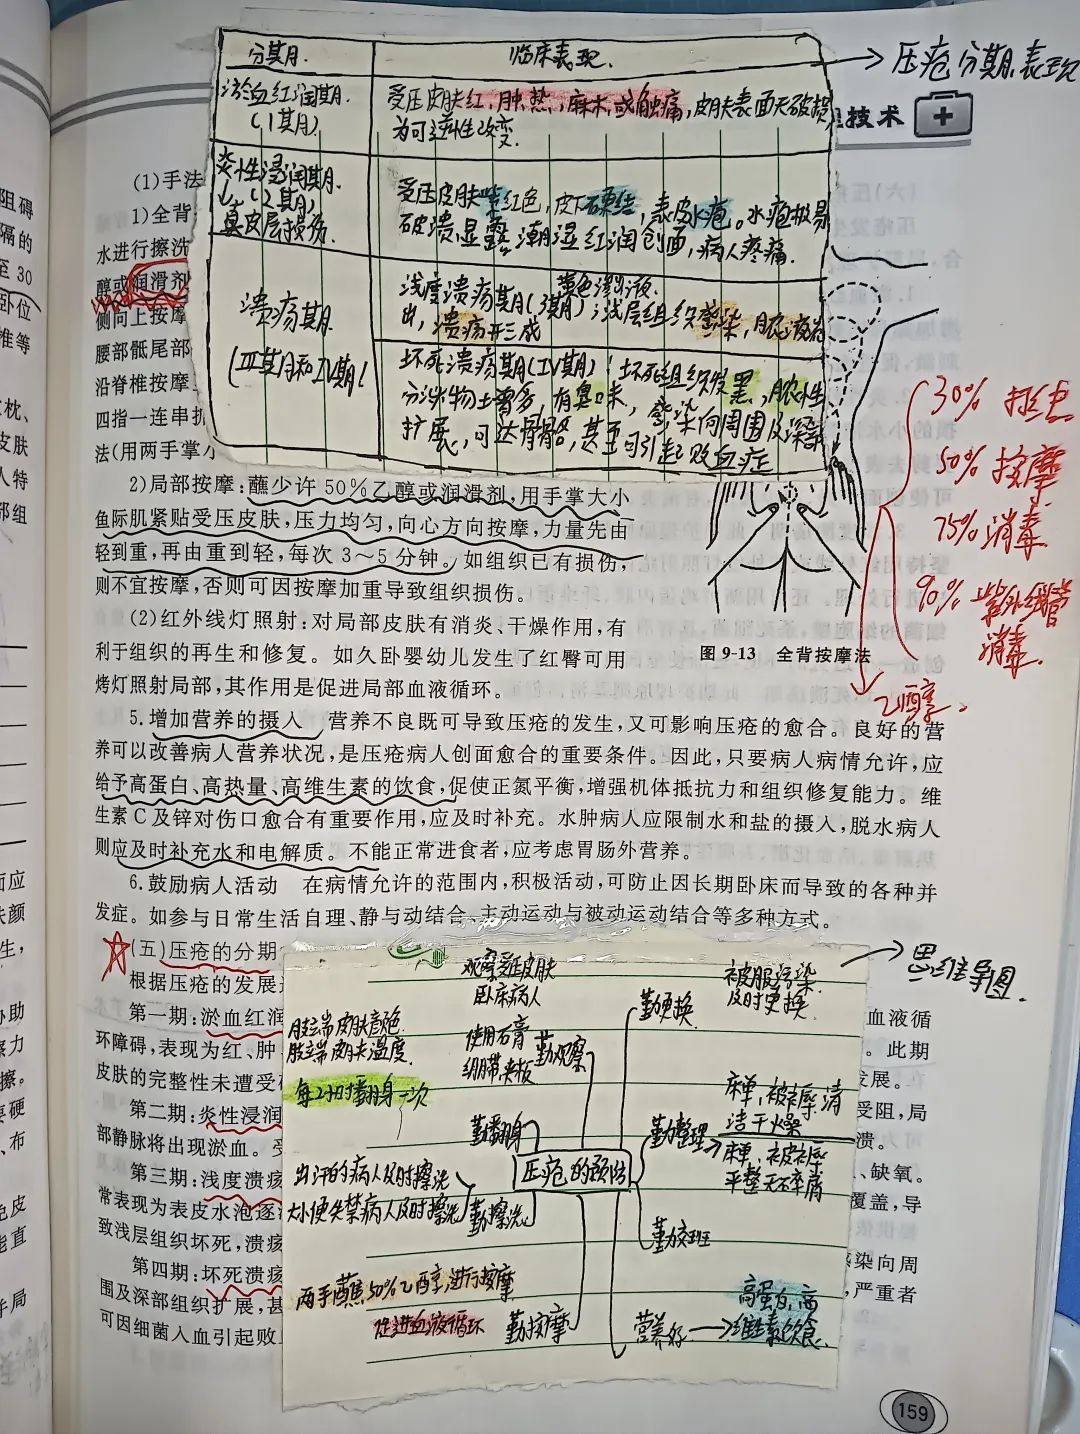 分期.
临床表现.
淤血红润期.
(1期)
受压皮肤红,肿,热,麻木,或触痛,皮肤表面无破损,
为可逆性改变.
炎性浸润期.
(2期)
真皮层损伤.
受压皮肤紫红色,皮下硬结,表皮水疱。水疱极易
破溃,显露潮湿红润创面,病人疼痛.
溃疡期.
(Ⅲ期和Ⅳ期)
黄色渗出液.
浅度溃疡期(3期):浅层组织感染,脓液流
出,溃疡形成
坏死溃疡期(Ⅳ期):坏死组织发黑,脓性
分泌物增多,有臭味,感染向周围及深部
扩展,可达骨骼,甚至可引起败血症
压疮分期,表现
技术
(1)手法
1)全背
水进行擦洗
醇或润滑剂
侧向上按摩
腰部骶尾部
沿脊椎按摩
四指一连串
法(用两手掌
2)局部按摩:蘸少许50%乙醇或润滑剂,用手掌大小
鱼际肌紧贴受压皮肤,压力均匀,向心方向按摩,力量先由
轻到重,再由重到轻,每次3~5分钟。如组织已有损伤,
则不宜按摩,否则可因按摩加重导致组织损伤。
(2)红外线灯照射:对局部皮肤有消炎、干燥作用,有
利于组织的再生和修复。如久卧婴幼儿发生了红臀可用
烤灯照射局部,其作用是促进局部血液循环。
图9-13 全背按摩法
30%
50% 按摩
75% 消毒
90% 紫外线管
消毒.
乙醇.
5.增加营养的摄入 营养不良既可导致压疮的发生,又可影响压疮的愈合。良好的营
养可以改善病人营养状况,是压疮病人创面愈合的重要条件。因此,只要病人病情允许,应
给予高蛋白、高热量、高维生素的饮食,促使正氮平衡,增强机体抵抗力和组织修复能力。维
生素C及锌对伤口愈合有重要作用,应及时补充。水肿病人应限制水和盐的摄入,脱水病人
则应及时补充水和电解质。不能正常进食者,应考虑胃肠外营养。
6.鼓励病人活动 在病情允许的范围内,积极活动,可防止因长期卧床而导致的各种并
发症。如参与日常生活自理、静与动结合、主动运动与被动运动结合等多种方式。
(五)压疮的分期
根据压疮的发展
第一期:淤血红润
血液循
环障碍,表现为红、肿
。此期
皮肤的完整性未遭受
发展。
第二期:炎性浸润
受阻,局
部静脉将出现淤血。受
溃。
第三期:浅度溃疡
、缺氧。
常表现为表皮水泡逐
覆盖,导
致浅层组织坏死,溃疡
第四期:坏死溃疡
感染向周
围及深部组织扩展,甚
,严重者
可因细菌入血引起败
思维导图.
观察受压皮肤
卧床病人
肢端皮肤颜色
肢端皮肤温度.
使用石膏
绷带夹板
勤观察
每2小时翻身一次
勤翻身
出汗的病人及时擦洗
大小便失禁病人及时擦洗
勤擦洗
两手蘸50%乙醇,进行按摩
促进血液循环
勤按摩
压疮的预防
勤更换
被服污染
及时更换
勤整理
床单,被褥,清
洁干燥
床单,被褥
平整无碎屑
勤交班
营养好
高蛋白,高
维生素饮食
159